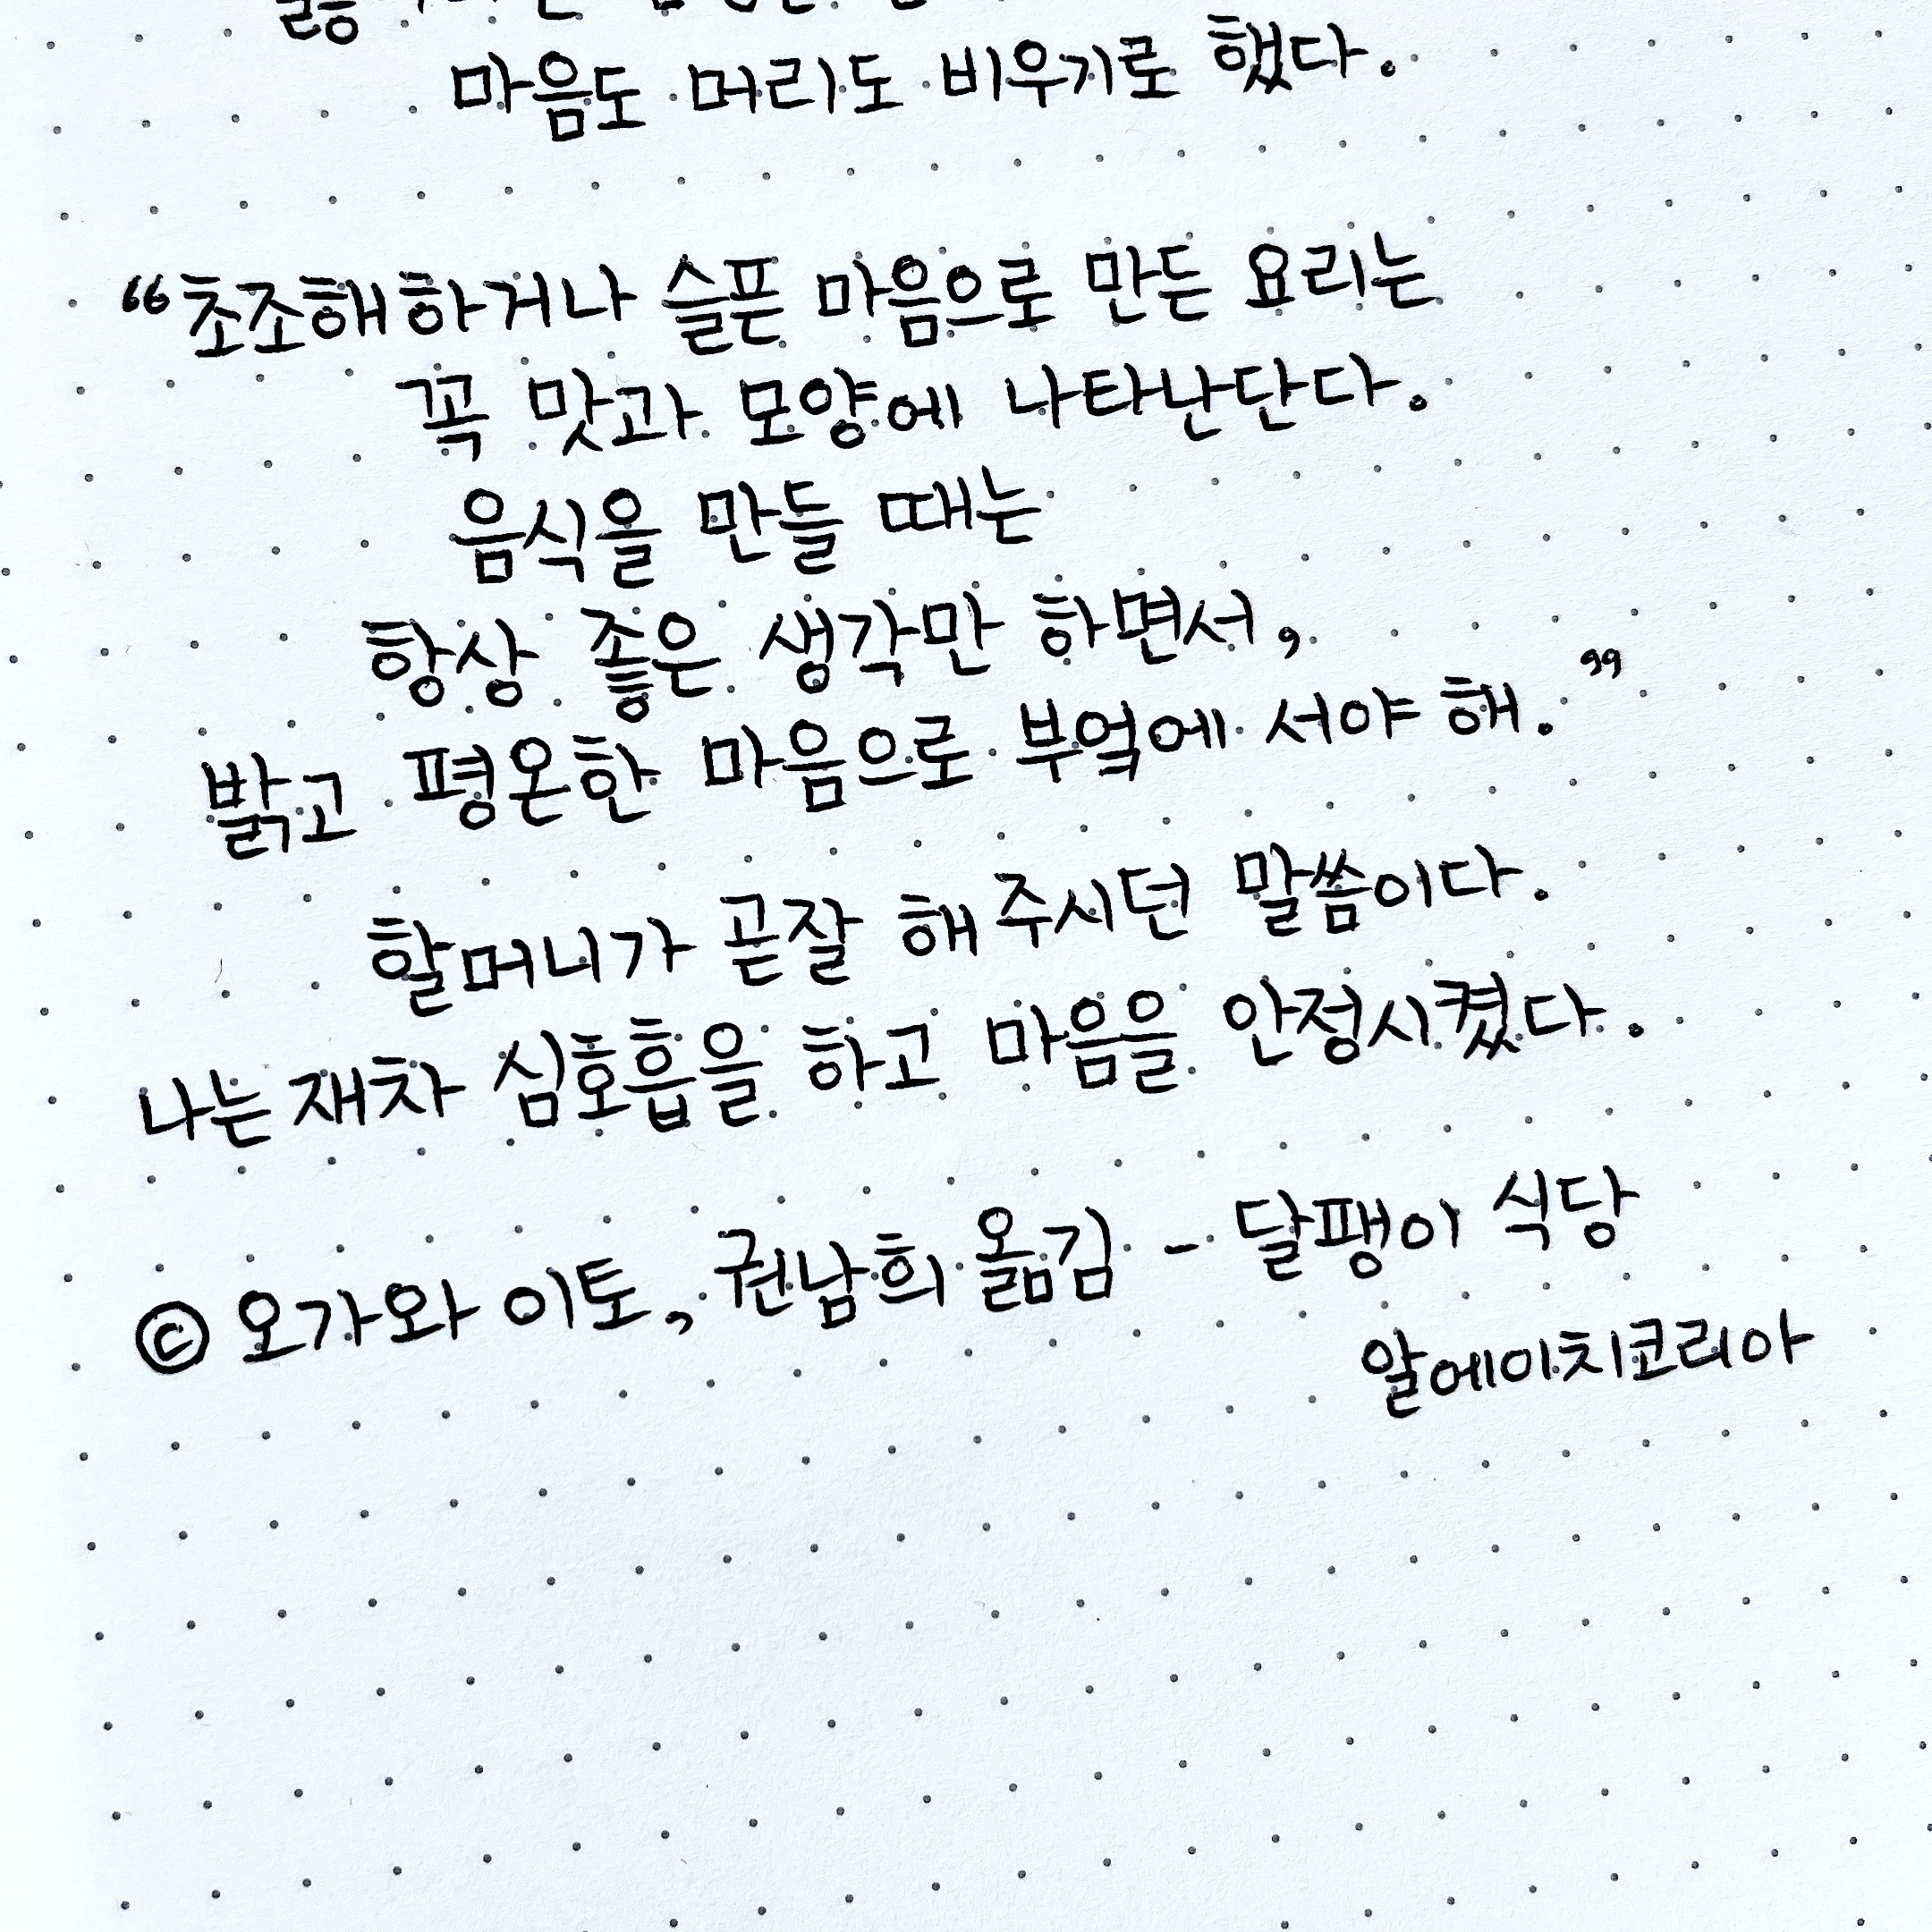 마음도 머리도 비우기로 했다.
“초조해하거나 슬픈 마음으로 만든 요리는
꼭 맛과 모양에 나타난단다.
음식을 만들 때는
항상 좋은 생각만 하면서,
밝고 평온한 마음으로 부엌에 서야 해.”
할머니가 곧잘 해주시던 말씀이다.
나는 재차 심호흡을 하고 마음을 안정시켰다.
© 오가와 이토, 권남희 옮김 - 달팽이 식당
알에이치코리아